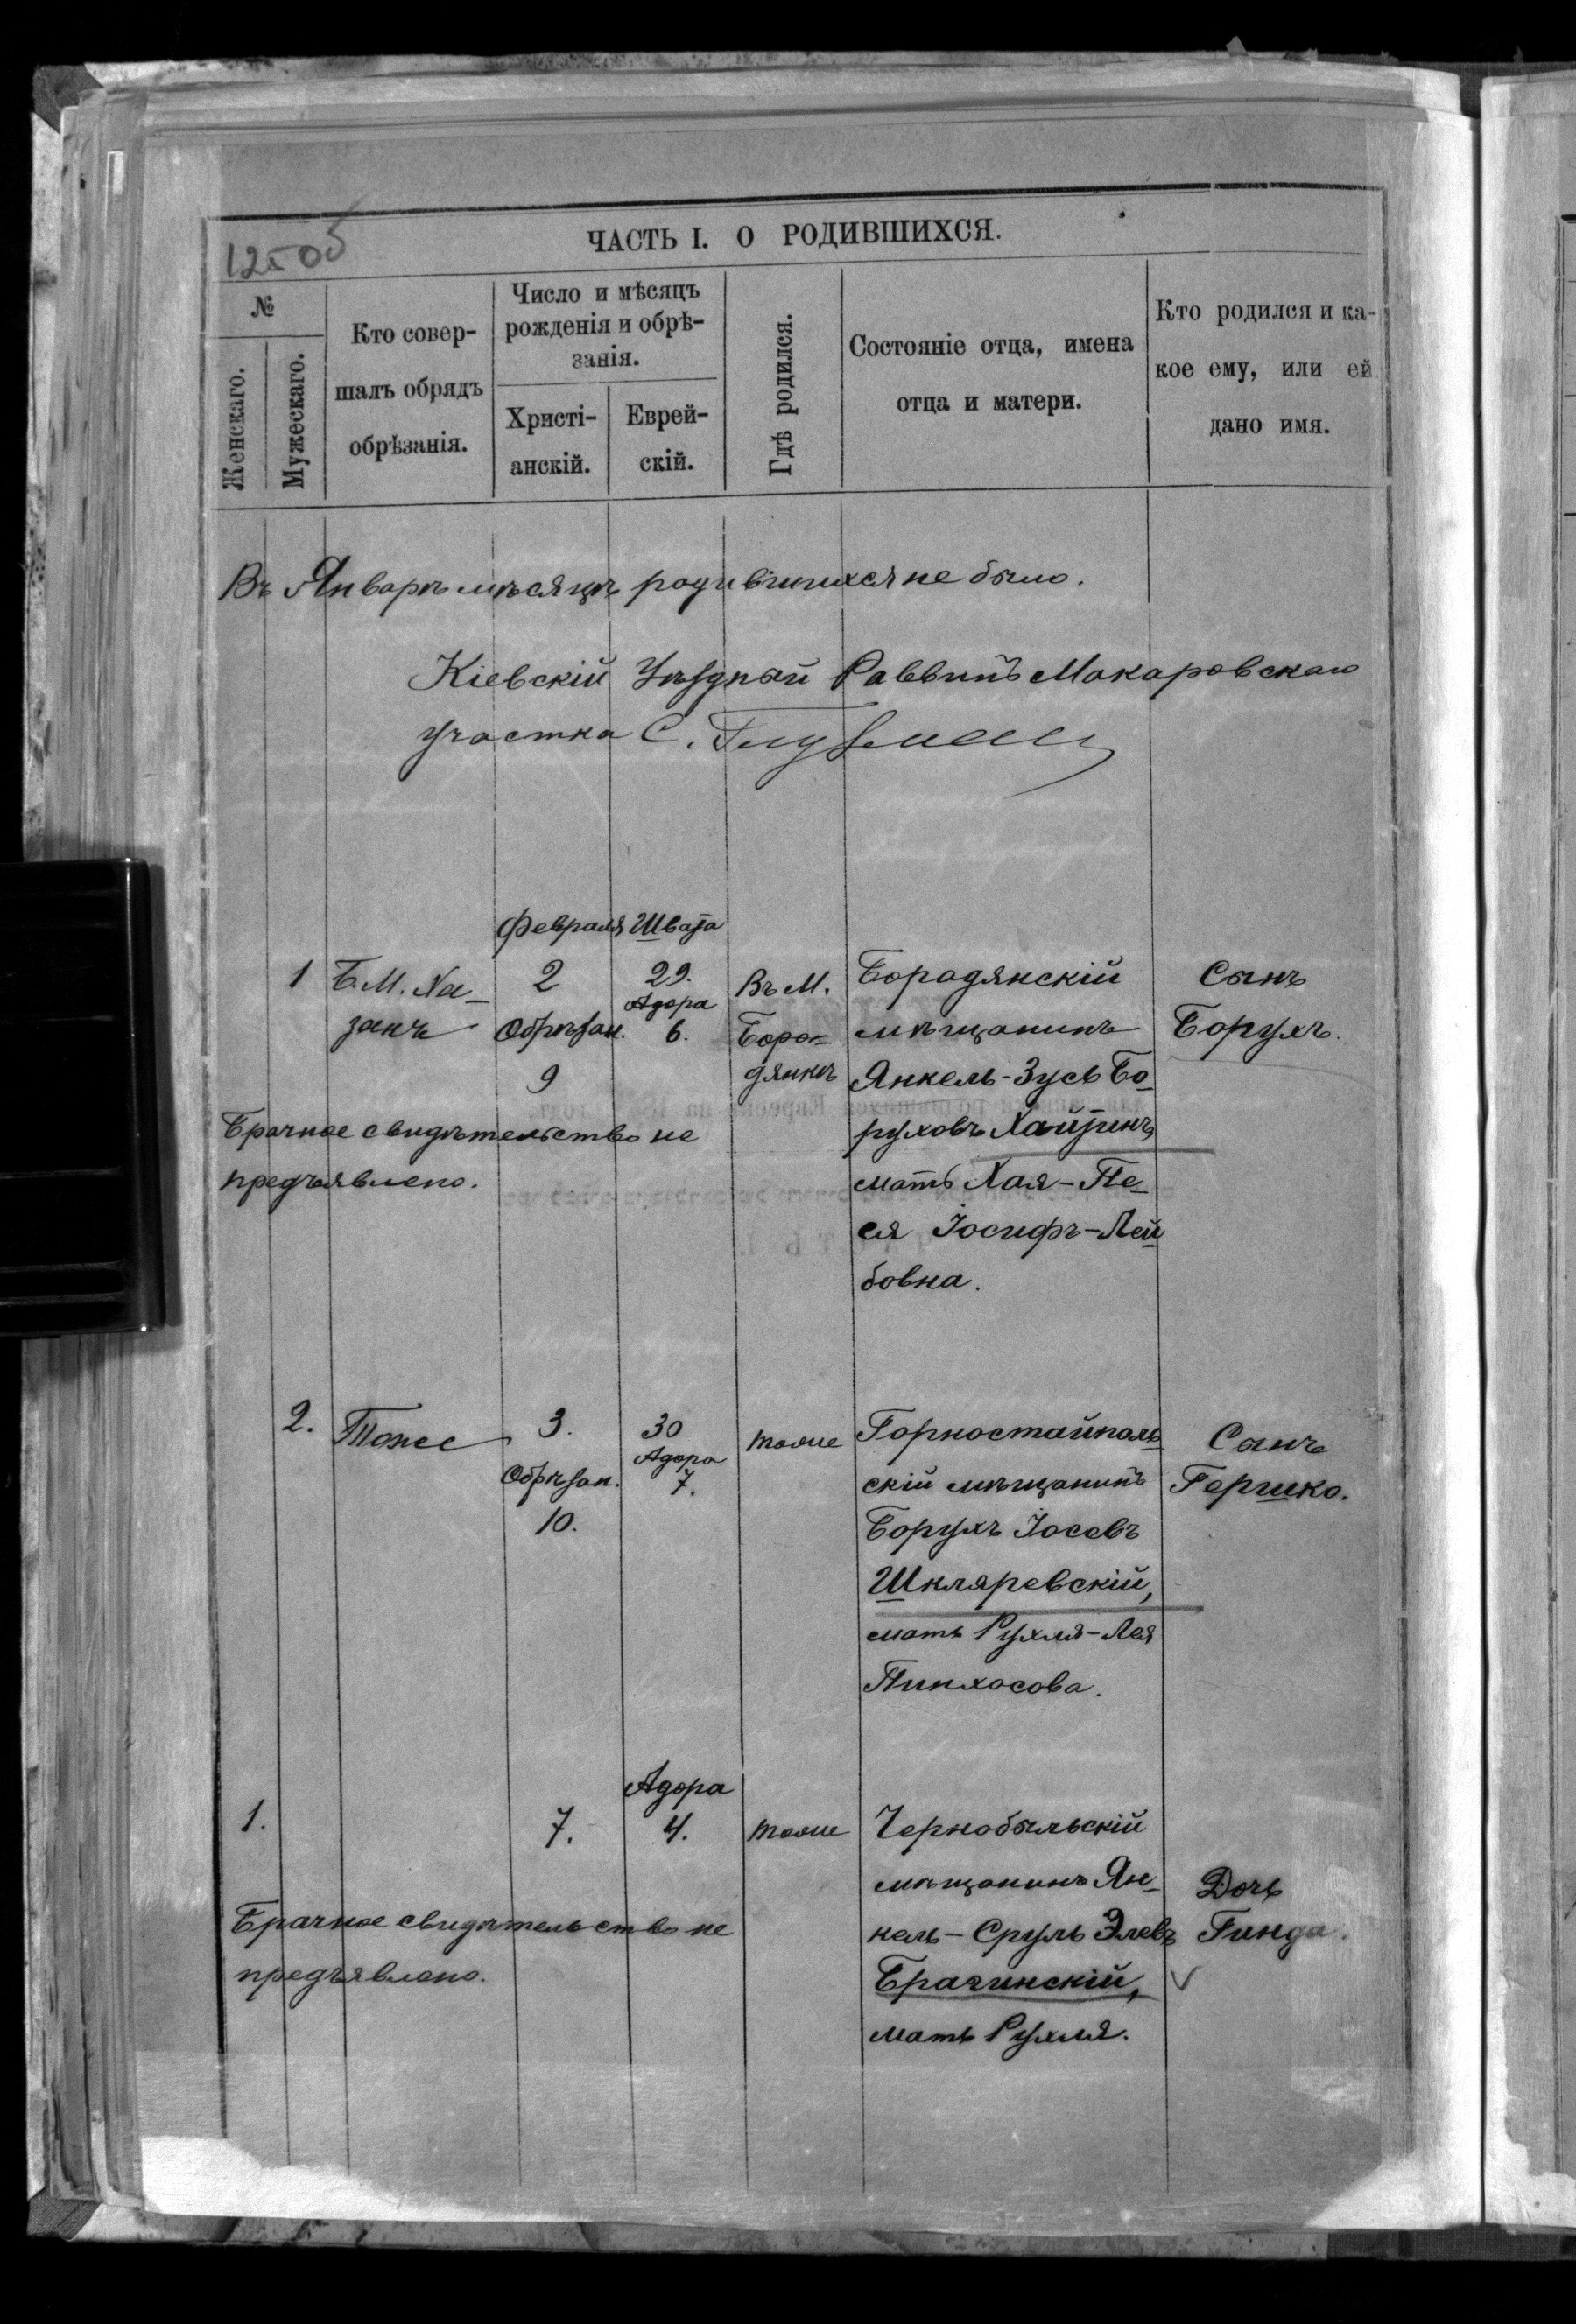 125об
ЧАСТЬ I. О РОДИВШИХСЯ.
№
Женскаго.
Мужескаго.
Кто совер-
шалъ обрядъ
обрѣзанія.
Число и мѣсяцъ
рожденія и обрѣ-
занія.
Христі-
анскій.
Еврей-
скій.
Гдѣ родился.
Состояніе отца, имена
отца и матери.
Кто родился и ка-
кое ему, или ей
дано имя.
Въ Январѣ мѣсяцѣ родившихся не было.
Кіевскій Уѣздный Раввинъ Макаровскаго
участка С.
Февраля Швата
1 Б. М. Ха-
занъ
2
Обрѣзан.
9
29.
Адора
6.
Въ М.
Боро-
дянкѣ
Бородянскій
мѣщанинъ
Янкель-Зусь Бо-
руховъ Хайтинъ,
мать Хая-Пе-
ся Іосифъ-Лей-
бовна.
Сынъ
Борухъ.
Брачное свидѣтельство не
предъявлено.
2. Тоже
3.
Обрѣзан.
10.
30
Адора
7.
тоже
Горностайполь-
скій мѣщанинъ
Борухъ Іосевъ
Шкляревскій,
мать Рухля-Лея
Пинхосова.
Сынъ
Гершко.
1.
7.
Адора
4.
тоже
Чернобыльскій
мѣщанинъ Ян-
кель-Сруль Элевъ
Брагинскій,
мать Рухля.
Дочь
Гинда.
Брачное свидѣтельство не
предъявлено.